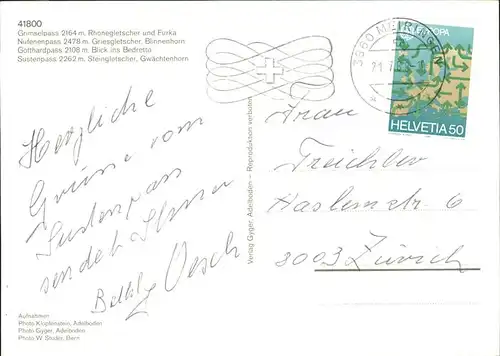 41800
Grimselpass 2164 m, Rhonegletscher und Furka
Nufenenpass 2478 m, Griesgletscher, Blinnenhorn
Gotthardpass 2108 m, Blick ins Bedretto
Sustenpass 2262 m, Steingletscher, Gwächtenhorn
Herzliche
Grüsse vom
Sustenpass
sendet Ihnen
Oesch
Aufnahmen
Photo Klopfenstein, Adelboden
Photo Gyger, Adelboden
Photo W. Studer, Bern
Verlag Gyger, Adelboden - Reproduktion verboten
3860 MEIRINGEN
EUROPA
HELVETIA 50
Frau
Treichler
Haslerstr. 6
8003 Zürich